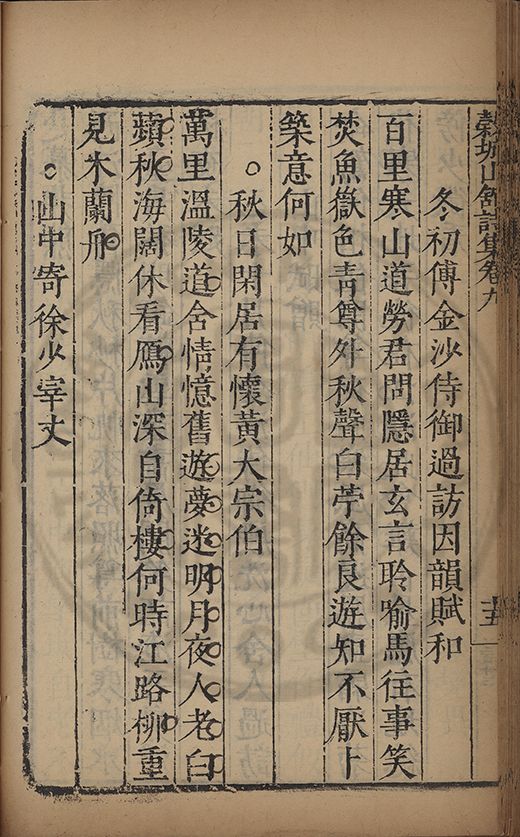 穀城山館詩集卷九
十五
冬初傅金沙侍御過訪因韻賦和
百里寒山道勞君問隱居玄言聆喻馬往事笑
焚魚嶽色青尊外秋聲白苧餘良遊知不厭卜
築意何如
秋日閑居有懷黃大宗伯
萬里溫陵道含情憶舊遊夢迷明月夜人老白
蘋秋海闊休看鴈山深自倚樓何時江路柳重
見木蘭舟
山中寄徐少宰丈